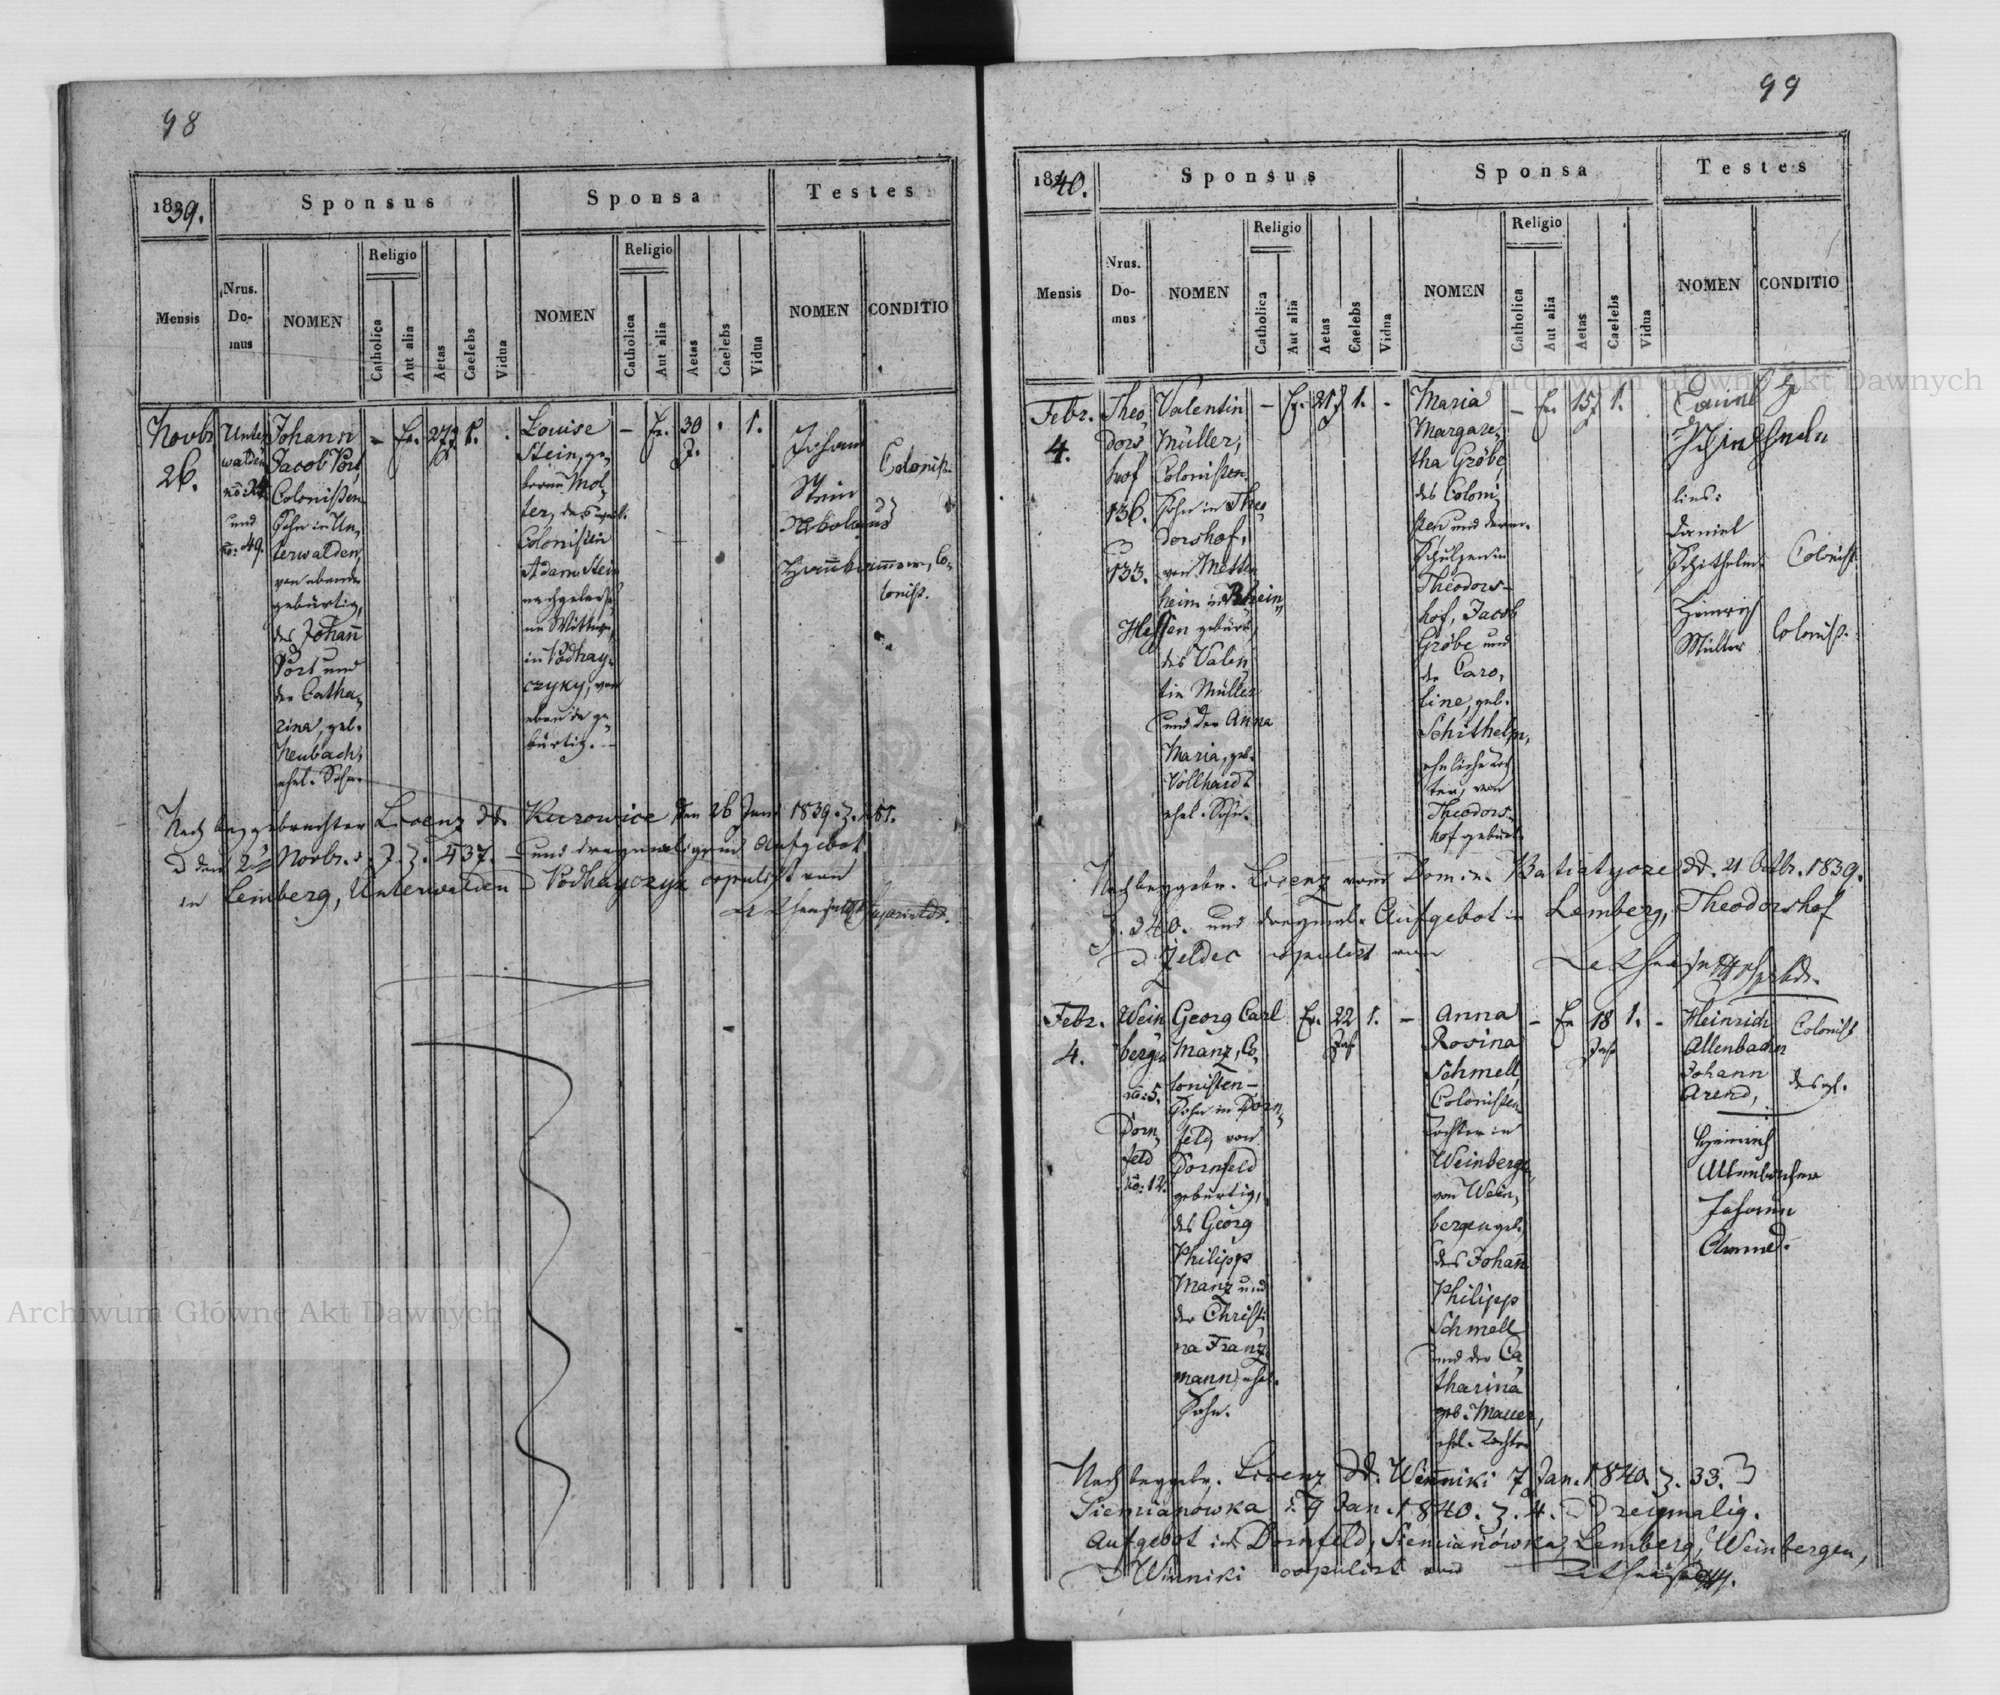 98
1839.
Sponsus
Sponsa
Testes
Mensis
Nrus.
Do-
mus
NOMEN
Religio
Catholica
Aut alia
Aetas
Caelebs
Vidua
NOMEN
Religio
Catholica
Aut alia
Aetas
Caelebs
Vidua
NOMEN
CONDITIO
Novbr
26.
Unter
walden
no: 24
und
no: 49.
Johann
Jacob Port,
Colonisten
Sohn in Un,
terwalden,
von ebenda
gebürtig,
des Johann
Port und
der Catha,
rina, geb.
Neubach,
ehel. Sohn
–
Ev.
27 J
1.
Louise
Stein, ge,
borene Mol,
ter, des weil.
Colonisten
Adam Stein
nachgelasse,
ne Wittwe,
in Podhay,
czyky, von
ebenda ge,
bürtig.
–
Ev.
30
J.
1.
Johann
Stein
Colonist
Nikolaus
Colonist.
Nach beygebrachter Licenz dd. Kurowice den 26 Juni 1839. Z. 151.
und dreymaligem Aufgebot
in Lemberg, Unterwalden Podhayczyk copulirt von
99
1840.
Sponsus
Sponsa
Testes
Mensis
Nrus.
Do-
mus
NOMEN
Religio
Catholica
Aut alia
Aetas
Caelebs
Vidua
NOMEN
Religio
Catholica
Aut alia
Aetas
Caelebs
Vidua
NOMEN
CONDITIO
Febr.
4.
Theo,
dors,
hof
136.
133.
Valentin
Müller,
Colonisten
Sohn in Theo,
dorshof,
von Metten
heim in Rhein,
Hessen gebürt,
des Valen,
tin Müller
und der Anna
Maria, geb.
Vollhardt
ehel. Sohn.
–
Ev.
21 J
1.
-
Maria
Margare,
tha Gröbe,
des Coloni,
sten und derm.
Schulzen in
Theodors-
hof, Jacob
Gröbe und
der Caro,
line, geb.
Schithelm,
eheliche Toch
ter, von
Theodors-
hof gebürt.
–
Ev.
15 J
1.
Daniel
Schithelm
Colonist
Heinrich
Müller
Colonist.
Nach beygebr. Licenz vom Domin. Batiatycze dd. 21 Octbr. 1839.
Z. 340. und dreymal. Aufgebot in Lemberg, Theodorshof
Zeldec copulirt von
Febr.
4.
Wein
bergen
no: 5.
Dorn,
feld
no: 12.
Georg Carl
Manz, Co,
lonisten-
Sohn in Dorn,
feld, von
Dornfeld
gebürtig,
des Georg
Philipp
Manz und
der Christi,
na Franz,
mann, ehel.
Sohn.
Ev.
22
Jah
1.
–
Anna
Rosina
Schmell,
Colonisten
Tochter in
Weinbergen,
von Wein,
bergen geb.
des Johann
Philipp
Schmell
und der Ca,
tharina
geb. Mauer,
ehel. Tochter
–
Ev
18
Jah
1.
-
Heinrich
Allenbacher
Colonist
Johann
Arend,
desgl.
Heinrich
Allenbacher
Johann
Arend.
Nach beygebr. Licenz dd. Winniki 7 Jan. 1840. Z. 33.
Siemianówka 9 Jan. 1840. Z. 4. Dreymalig.
Aufgebot in Dornfeld, Siemianówka, Lemberg, Weinbergen,
Winniki copulirt von
Archiwum Główne Akt Dawnych
Archiwum Główne Akt Dawnych